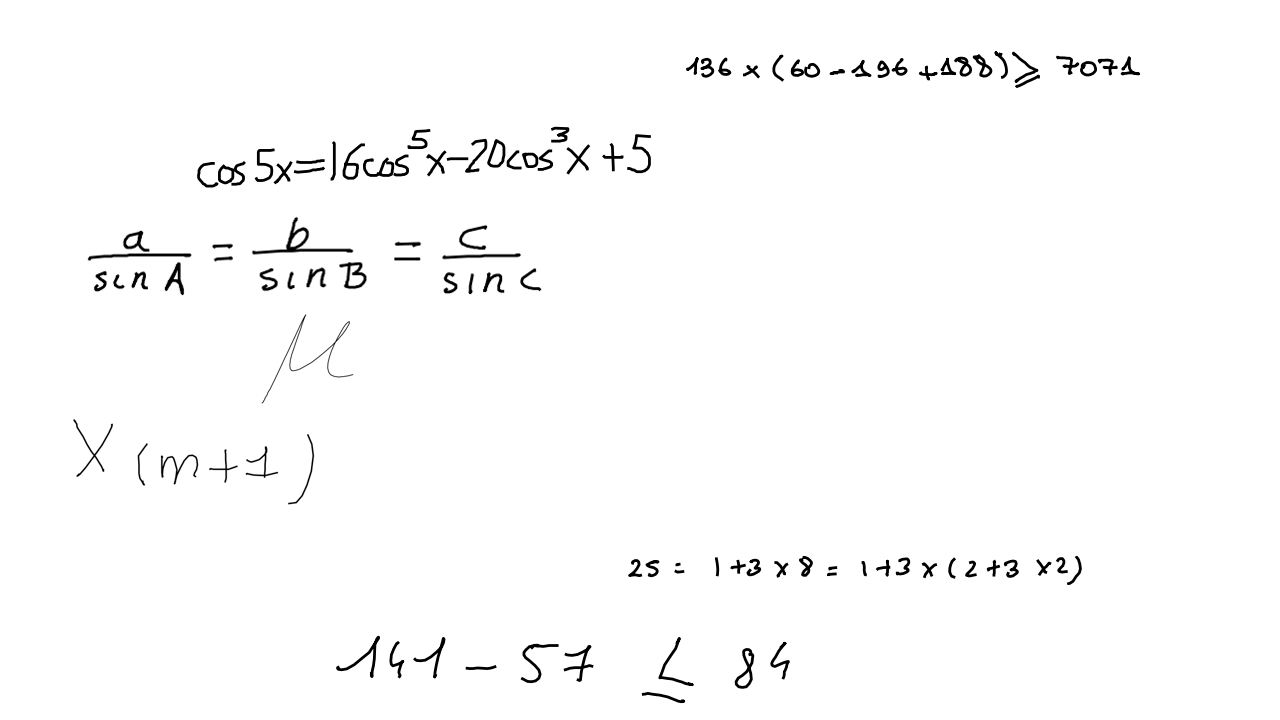 136 × (60 - 196 + 188) ⩾ 7071
cos 5x = 16cos⁵x - 20cos³x + 5
a/sin A = b/sin B = c/sin C
μ
X(m+1)
25 = 1+3×8 = 1+3×(2+3×2)
141 - 57 ≤ 84